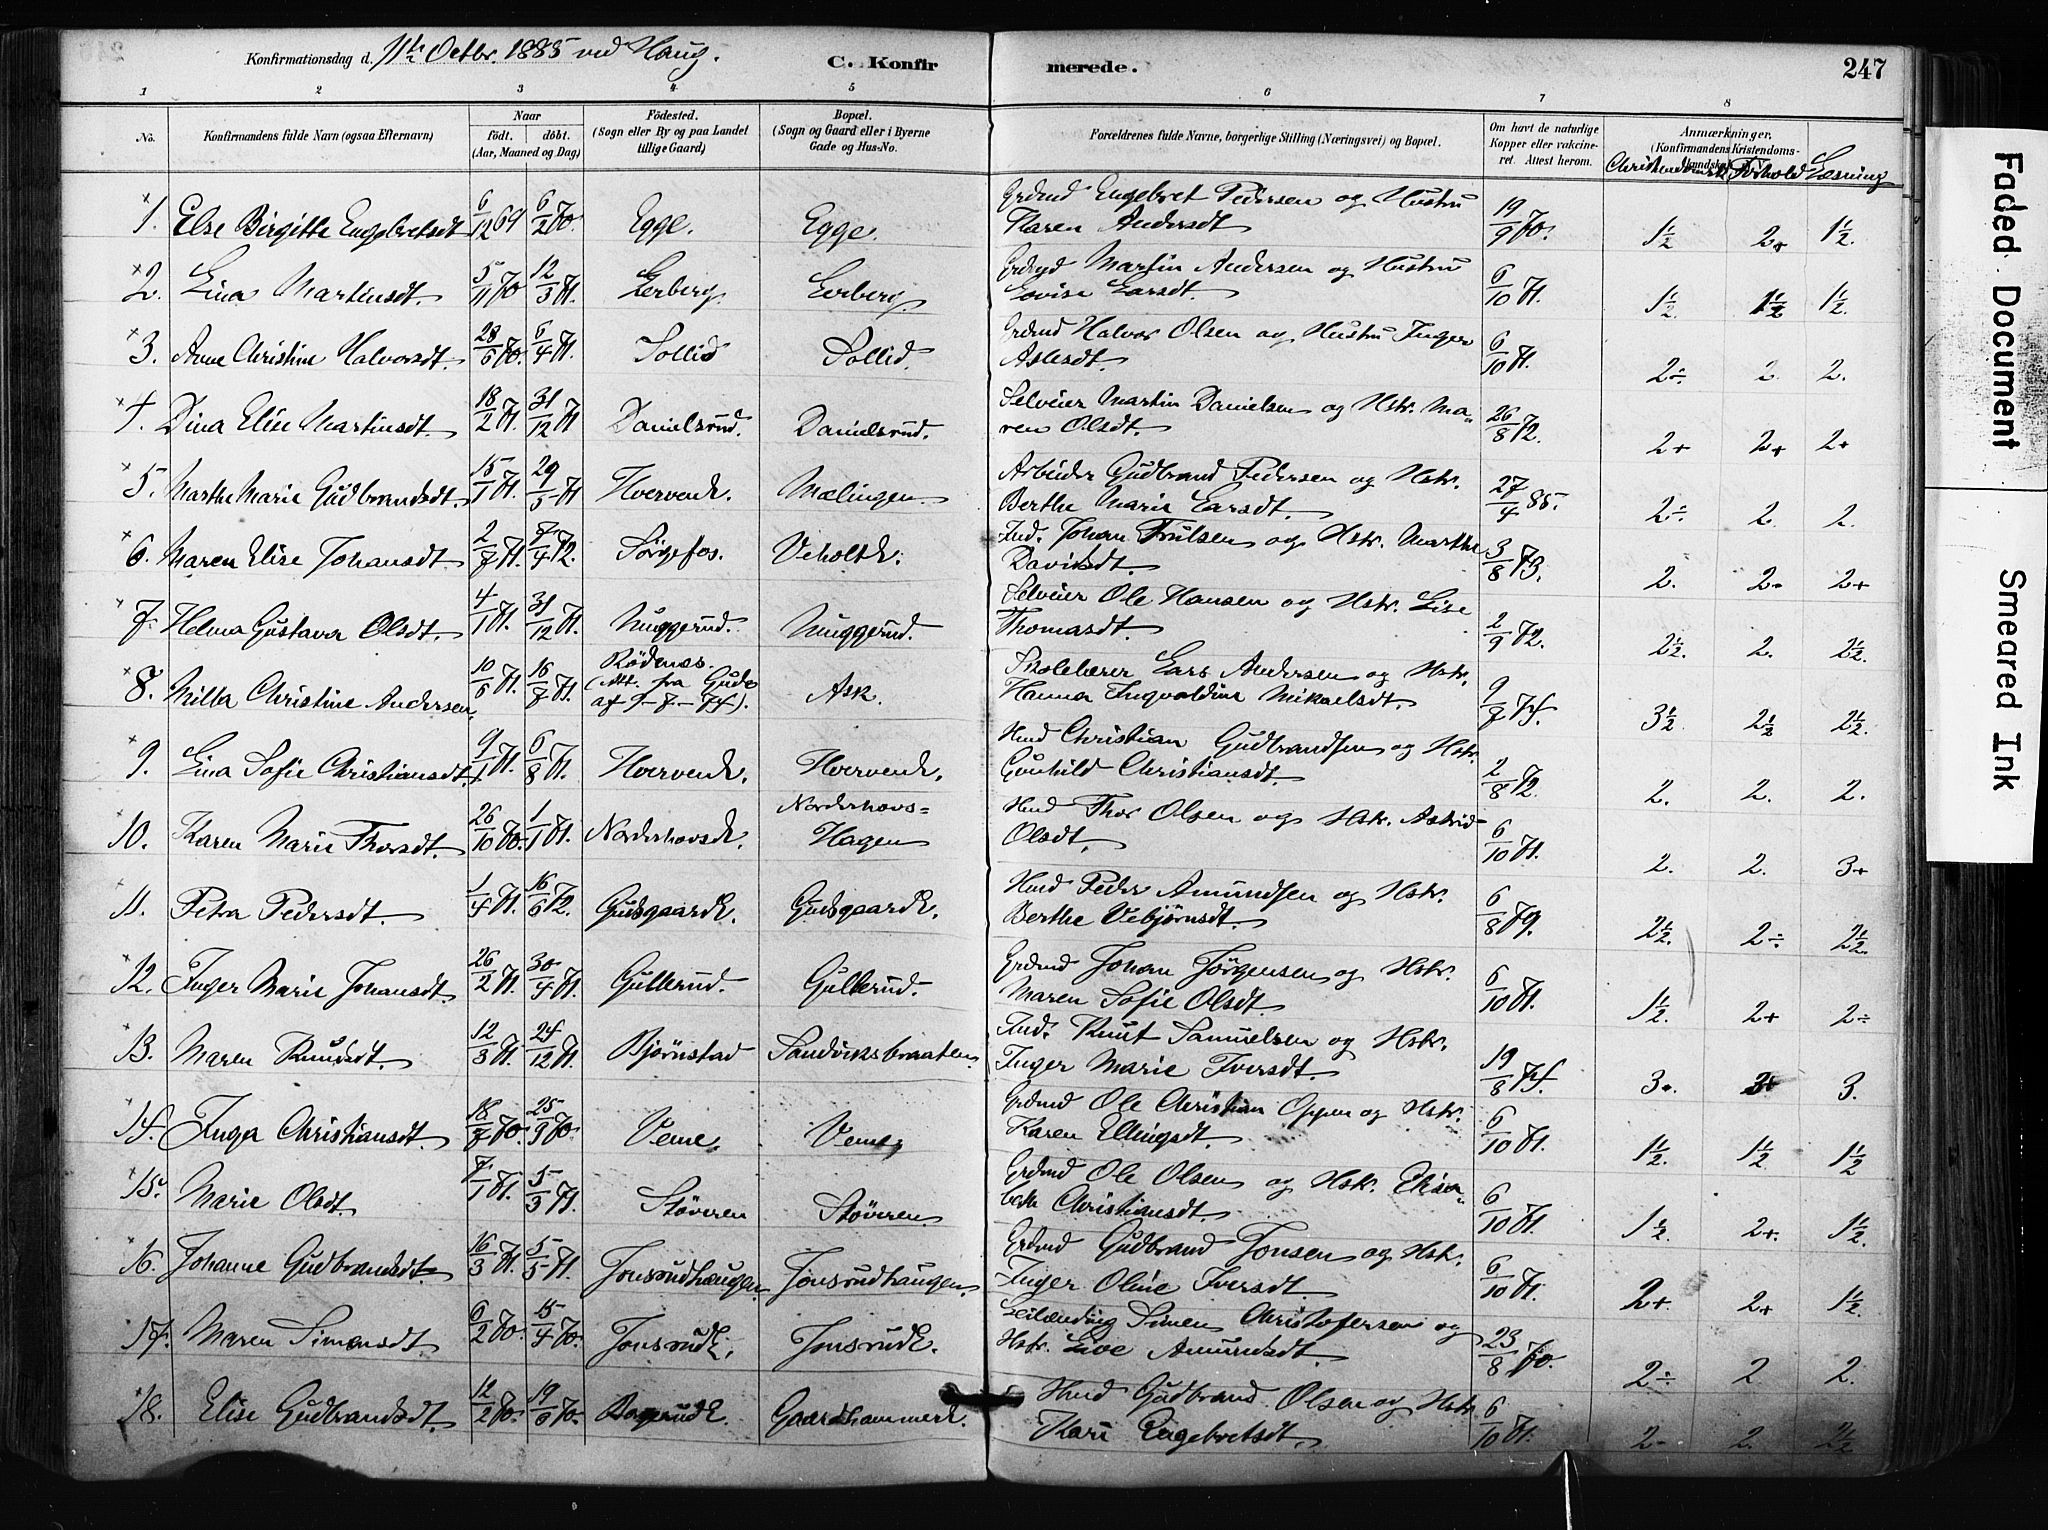 Konfirmationsdag d. 11te Octbr. 1885 ved Haug.
C. Konfirmerede.
247
1 2 3 4 5 6 7 8
No.
Konfirmandens fulde Navn (ogsaa Efternavn)
Naar
födt. döbt.
(Aar, Maaned og Dag)
Födested.
(Sogn eller By og paa Landet
tillige Gaard)
Bopæl.
(Sogn og Gaard eller i Byerne
Gade og Hus-No.
Forældrenes fulde Navne, borgerlige Stilling (Næringsvei) og Bopæl.
Om havt de naturlige
Kopper eller vakcine-
ret. Attest herom.
Anmærkninger.
(Konfirmandens Kristendoms-
kundskab o. s. v.)
Forhold Læsning
1. Else Birgitte Engebretsdt 6/12 69 6/2 70. Egge. Egge. Grdmd Engebret Pedersen og Hustru
Karen Andersdt. 19/9 70. 1½ 2+ 1½.
2. Lina Martinsdt. 5/11 70 12/3 71. Lerberg Lerberg Martin Andersen og Hustru
Lovise Larsdt. 6/10 71. 1½ 1½ 1½.
3. Anne Christine Halvorsdt. 28/6 70. 6/4 71. Sollid Sollid. Grdmd Halvor Olsen og Hustru Inger
Aslesdt. 6/10 71. 2÷ 2. 2.
4. Dina Elise Martinsdt. 18/2 71. 31/12 71 Danielsrud. Danielsrud. Selveier Martin Danielsen og Hstr. Ma-
ren Olsdt. 26/8 72. 2+ 2+ 2+
5. Marthe Marie Gudbrandsdt. 15/1 71. 29/5 71 Hvervenk. Mælingen Arbeider Gudbrand Pedersen og Hstr.
Berthe Marie Larsdt. 27/4 85. 2÷ 2. 2.
6. Maren Elise Johansdt 2/7 71. 7/4 72. Sørgefos. Veholtk. Ind. Johan Trulsen og Hstr. Marthe
Davidsdt. 3/8 73. 2. 2+ 2+
7. Helma Gustava Olsdt. 4/1 71. 31/12 71. Muggerud. Muggerud. Selveier Ole Hansen og Hstr. Lise
Thomasdt. 2/9 72. 2½. 2. 2½.
8. Milla Christine Andersen 10/6 71. 16/7 71. Rödenæs.
(Att. fra Gude
af 9-7-74). Ask. Skolelærer Lars Andersen og Hstr.
Hanna Ingvoldine Mikaelsdt. 9/7 74. 3½ 2½ 2½.
9. Lina Sofie Christiansdt. 9/1 71. 6/8 71. Hvervenk. Hvervenk. Hmd Christian Gudbrandsen og Hstr.
Gunhild Christiansdt. 2/8 72. 2. 2. 2.
10. Karen Marie Thorsdt. 26/10 70. 1/1 71. Norderhovsk. Norderhovs=
Hagen Hmd Thor Olsen og Hstr. Astrid
Olsdt. 6/10 71. 2. 2. 3+
11. Petra Pedersdt. 1/4 71. 16/6 72. Gudsgaardk. Gudsgaardk. Hmd Peder Amundsen og Hstr.
Berthe Vebjörnsdt. 6/8 79. 2½. 2÷ 2½.
12. Inger Marie Johansdt. 26/2 71. 30/4 71. Gullerud. Gullerud. Grdmd Johan Jörgensen og Hstr.
Maren Sofie Olsdt. 6/10 71. 1½. 2+ 2÷
13. Maren Knudsdt. 12/3 71. 24/12 71. Bjørnstad Sandviksbraaten. Ind. Knut Samuelsen og Hstr.
Inger Marie Iversdt. 19/8 74. 3+. 3+ 3.
14. Inga Christiansdt. 18/7 70. 25/9 70. Veme. Veme Grdmd Ole Christian Oppen og Hstr.
Karen Ellingsdt. 6/10 71. 1½. 1½ 1½
15. Marie Olsdt. 7/1 71. 5/3 71. Støveren Støveren Grdmd Ole Olsen og Hstr. Elisa-
beth Christiansdt. 6/10 71. 1½ 2+. 1½.
16. Johanne Gudbrandsdt. 16/3 71. 5/5 71. Jonsrudhaugen Jonsrudhaugen. Grdmd Gudbrand Jonsen og Hstr.
Inger Oline Iversdt. 6/10 71. 2+. 2+ 1½.
17. Maren Simensdt 6/2 70. 15/4 70. Jonsrudk. Jonsrudk. Leilænding Simen Christofersen og
Hstr. Live Amundsdt. 23/8 70. 2÷ 2 2.
18. Elise Gudbrandsdt. 12/2 70. 19/6 70. Gaardhammerk. Hmd Gudbrand Olsen og Hstr
Kari Engebretsdt. 6/10 71. 2- 2. 2½
Faded Document
Smeared Ink